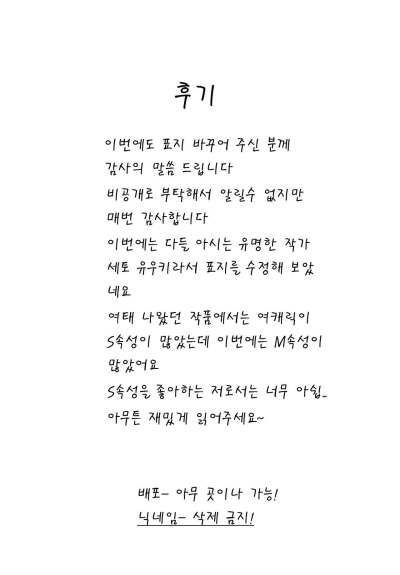 후기
이번에도 표지 바꾸어 주신 분께
감사의 말씀 드립니다
비공개로 부탁해서 알릴수 없지만
매번 감사합니다
이번에는 다들 아시는 유명한 작가
세토 유우키라서 표지를 수정해 보았
네요
여태 나왔던 작품에서는 여캐릭이
S속성이 많았는데 이번에는 M속성이
많았어요
S속성을 좋아하는 저로서는 너무 아쉽_
아무튼 재밌게 읽어주세요~
배포- 아무 곳이나 가능!
닉네임- 삭제 금지!